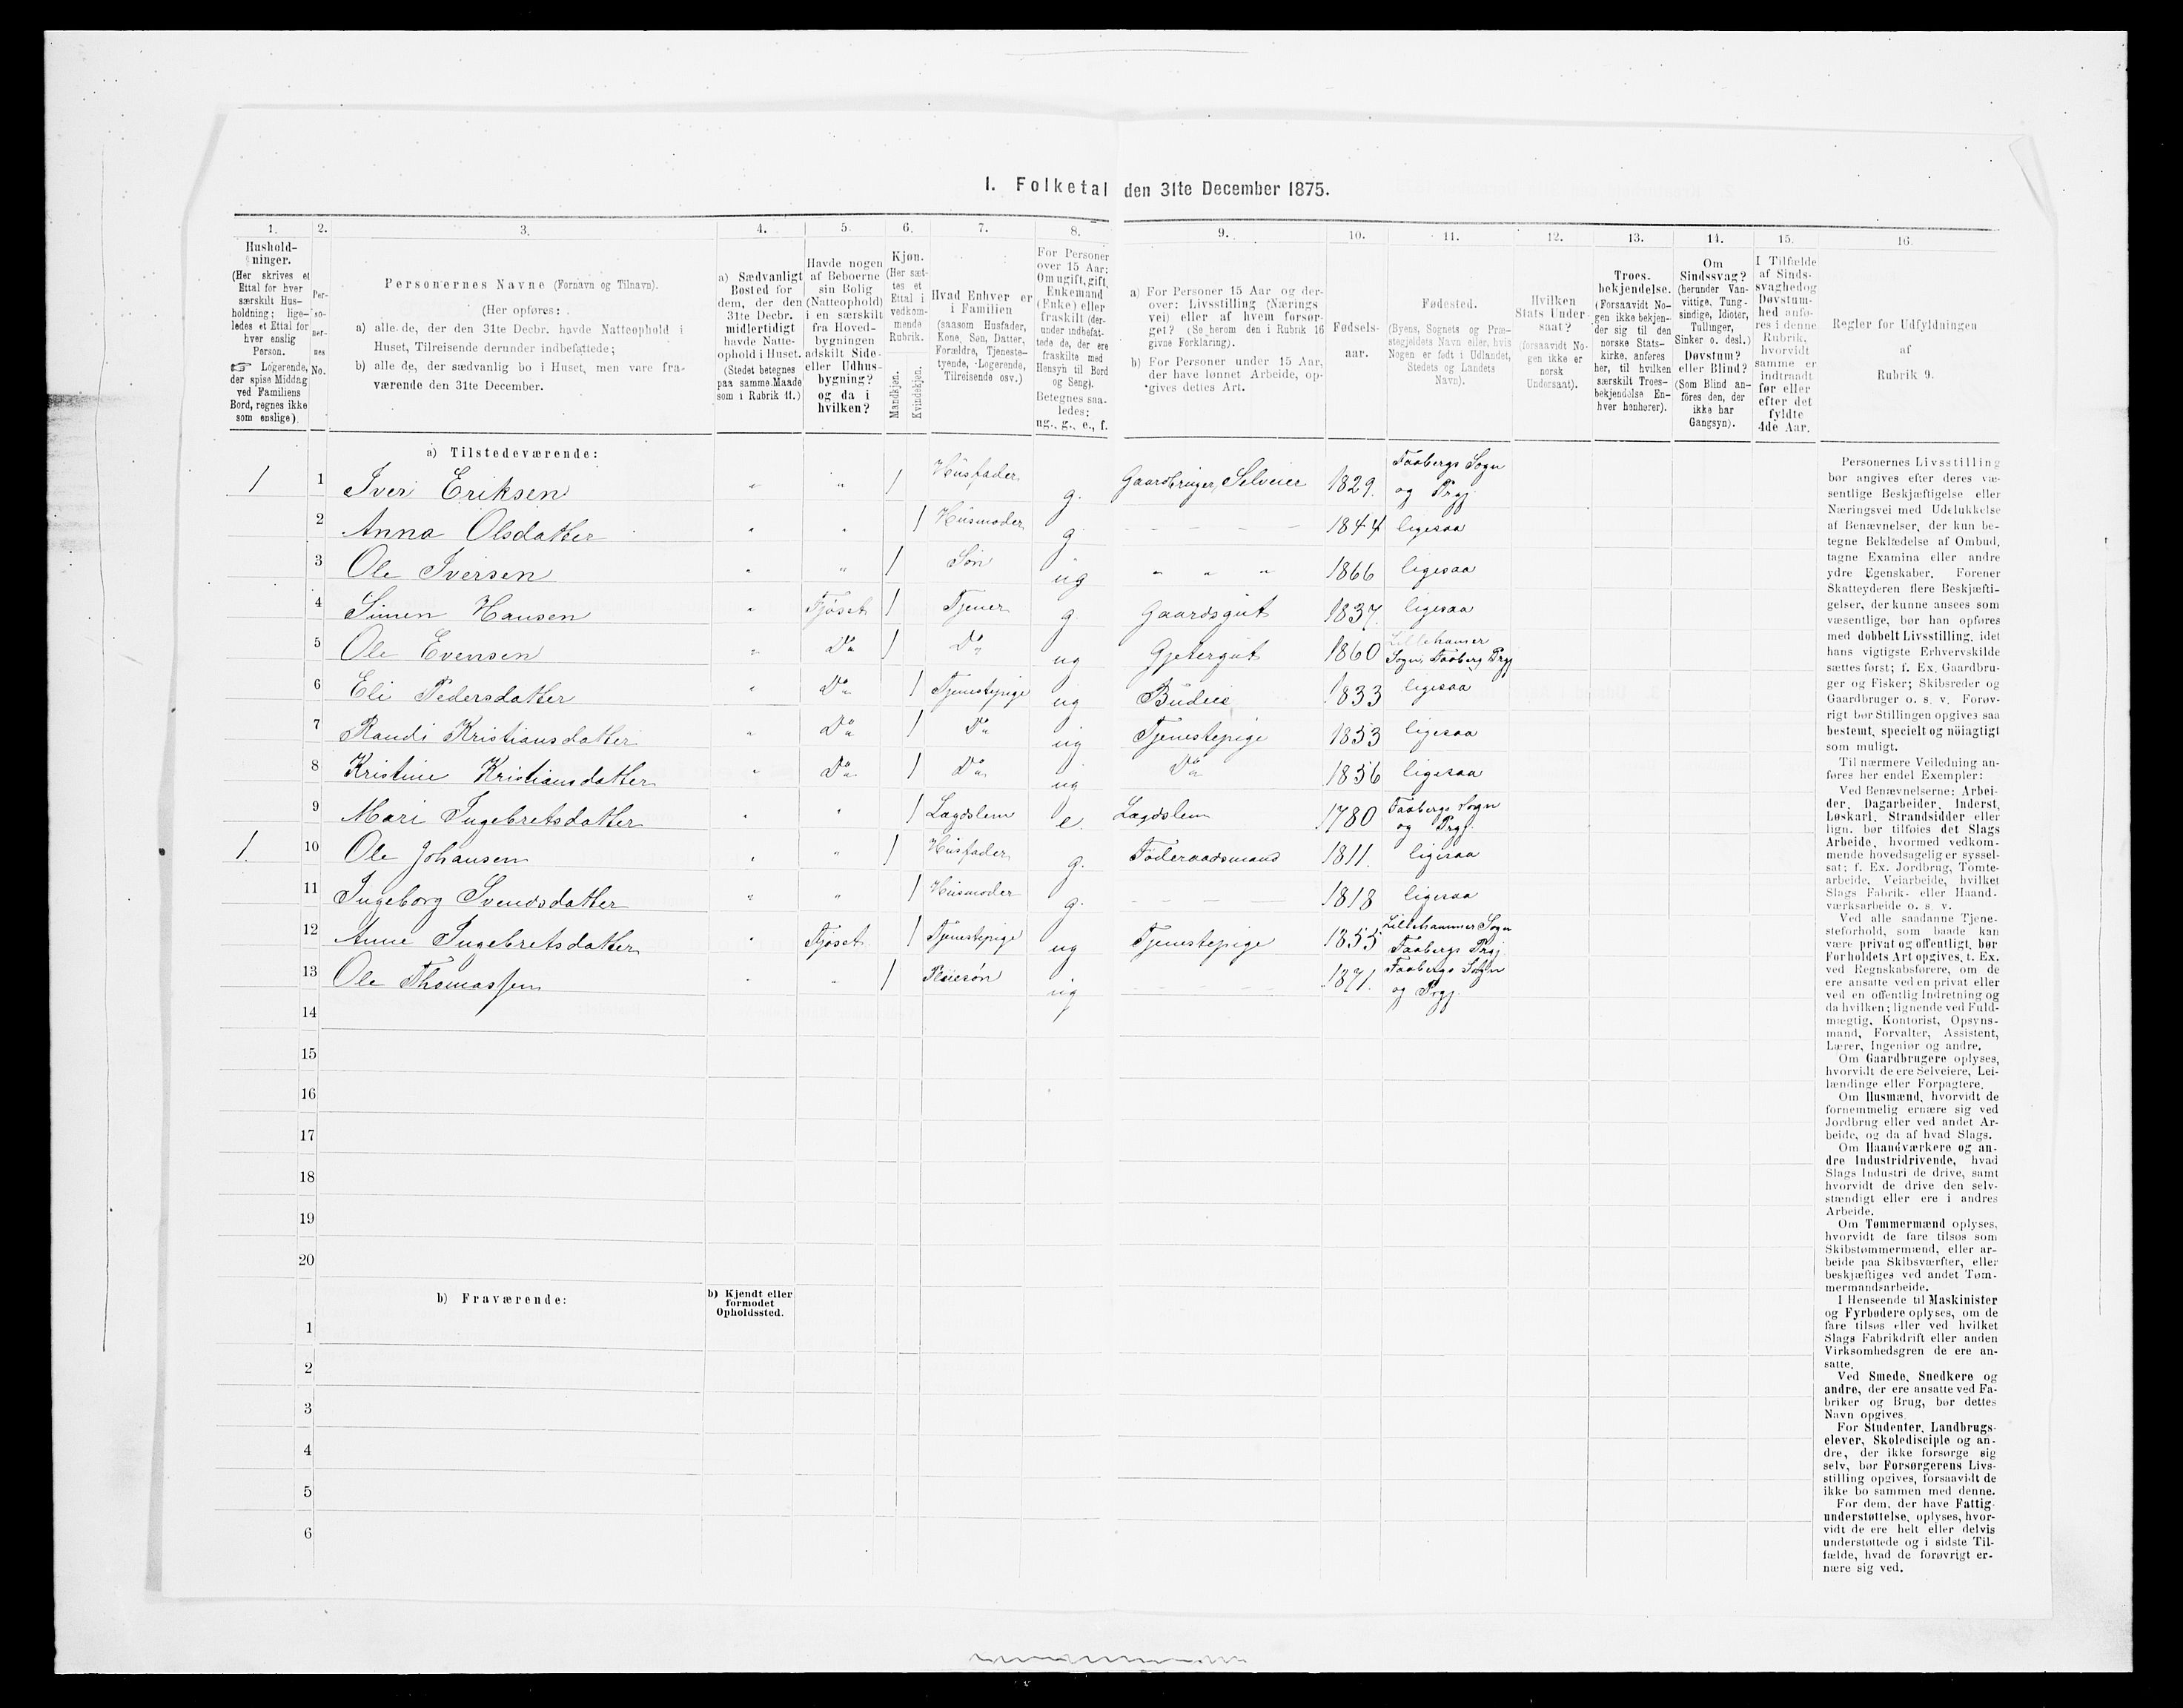 I. Folketal den 31te December 1875.
1. 2. 3. 4. 5. 6. 7. 8. 9. 10. 11. 12. 13. 14. 15. 16.
Hushold-
ninger.
(Her skrives et
Ettal for hver
særskilt Hus-
holdning; lige-
ledes et Ettal for
hver enslig
Person.
☞ Logerende,
der spise Middag
ved Familiens
Bord, regnes ikke
som enslige).
Per-
so-
ner-
nes
No.
Personernes Navne (Fornavn og Tilnavn).
(Her opføres:
a) alle de, der den 31te Decbr. havde Natteophold i
Huset, Tilreisende derunder indbefattede;
b) alle de, der sædvanlig bo i Huset, men vare fra-
værende den 31te December.
a) Sædvanligt
Bosted for
dem, der den
31te Decbr.
midlertidigt
havde Natte-
ophold i Huset.
(Stedet betegnes
paa samme Maade
som i Rubrik 11.)
Havde nogen
af Beboerne
sin Bolig
(Natteophold)
i en særskilt
fra Hoved-
bygningen
adskilt Side-
eller Udhus-
bygning?
og da i
hvilken?
Kjøn.
(Her sæt-
tes et
Ettal i
vedkom-
mende
Rubrik.
Mandkjøn.
Kvindekjøn.
Hvad Enhver er
i Familien
(saasom Husfader,
Kone, Søn, Datter,
Forældre, Tjeneste-
tyende, Logerende,
Tilreisende osv.)
For Personer
over 15 Aar:
Om ugift, gift,
Enkemand
(Enke) eller
fraskilt (der-
under indbefat-
tede de, der ere
fraskilte med
Hensyn til Bord
og Seng).
Betegnes saa-
ledes:
ug., g., e., f.
a) For Personer 15 Aar og der-
over: Livsstilling (Nærings
vei) eller af hvem forsør-
get? (Se herom den i Rubrik 16
givne Forklaring).
b) For Personer under 15 Aar,
der have lønnet Arbeide, op-
gives dettes Art.
Fødsels-
aar.
Fødested.
(Byens, Sognets og Præ-
stegjeldets Navn eller, hvis
Nogen er født i Udlandet,
Stedets og Landets
Navn).
Hvilken
Stats Under-
saat?
(forsaavidt No-
gen ikke er
norsk
Undersaat).
Troes-
bekjendelse.
(Forsaavidt No-
gen ikke bekjen-
der sig til den
norske Stats-
kirke, anføres
her, til hvilken
særskilt Troes-
bekjendelse En-
hver henhører).
Om
Sindssvag?
(herunder Van-
vittige, Tung-
sindige, Idioter,
Tullinger,
Sinker o. desl.)
Døvstum?
eller Blind?
(Som Blind an-
føres den, der
ikke har
Gangsyn).
I Tilfælde
af Sinds-
svaghed og
Døvstum-
hed anfø-
res i denne
Rubrik,
hvorvidt
samme er
indtraadt
før eller
efter det
fyldte
4de Aar.
Regler for Udfyldningen
af
Rubrik 9.
a) Tilstedeværende:
1 1 Iver Eriksen " " 1 Husfader g. Gaardbruger, Selveier 1829. Faabergs Sogn og Prgj.
2 Anna Olsdatter " " 1 Husmoder g - - - - 1844 ligesaa
3 Ole Iversen " " 1 Søn ug " " " 1866 ligesaa
4 Simen Hansen " Fjøset 1 Tjener g Gaardsgut 1837. ligesaa
5 Ole Evensen " Do 1 Do ug Gjetergut 1860 Lillehamer Sogn, Faaberg Prgj
6 Eli Pedersdatter " Do 1 Tjenestepige ug Budeie 1833 ligesaa
7 Randi Kristiansdatter " Do 1 Do ug Tjenestepige 1853 ligesaa
8 Kristine Kristiansdatter " Do 1 Do ug Do 1856 ligesaa
9 Mari Ingebretsdatter " " 1 Lægdslem e. Lægdslem 1780 Faabergs Sogn og Prgj.
1. 10 Ole Johansen " " 1 Husfader g. Føderaadsmand 1811. ligesaa
11 Ingeborg Svendsdatter " " 1 Husmoder g. - - - - 1818 ligesaa
12 Anne Ingebretsdatter " Fjøset 1 Tjenestepige ug Tjenestepige 1855 Lillehammer Sogn Faabergs Prgj.
13 Ole Thomassen " " 1 Pleiesøn ug - - - - 1871. Faabergs Sogn og Prgj.
14
15
16
17
18
19
20
b) Fraværende:
b) Kjendt eller
formodet
Opholdssted.
1
2
3
4
5
6
Personernes Livsstilling
bør angives efter deres væ-
sentlige Beskjæftigelse eller
Næringsvei med Udelukkelse
af Benævnelser, der kun be-
tegne Beklædelse af Ombud,
tagne Examina eller andre
ydre Egenskaber. Forener
Skatteyderen flere Beskjæfti-
gelser, der kunne ansees som
væsentlige, bør han opføres
med dobbelt Livsstilling, idet
hans vigtigste Erhvervskilde
sættes først; f. Ex. Gaardbru-
ger og Fisker; Skibsreder og
Gaardbruger o. s. v. Forøv-
rigt bør Stillingen opgives saa
bestemt, specielt og nöiagtigt
som muligt.
Til nærmere Veiledning an-
føres her endel Exempler:
Ved Benævnelserne: Arbei-
der, Dagarbeider, Inderst,
Løskarl, Strandsidder eller
lign. bør tilføies det Slags
Arbeide, hvormed vedkom-
mende hovedsagelig er syssel-
sat; f. Ex. Jordbrug, Tomte-
arbeide, Veiarbeide, hvilket
Slags Fabrik- eller Haand-
værksarbeide o. s. v.
Ved alle saadanne Tjene-
steforhold, som baade kan
være privat og offentligt, bør
Forholdets Art opgives, t. Ex.
ved Regnskabsførere, om de
ere ansatte ved en privat eller
ved en offentlig Indretning og
da hvilken; lignende ved Fuld-
mægtig, Kontorist, Opsyns-
mand, Forvalter, Assistent,
Lærer, Ingeniør og andre.
Om Gaardbrugere oplyses,
hvorvidt de ere Selveiere, Lei-
lændinge eller Forpagtere.
Om Husmænd, hvorvidt de
fornemmelig ernære sig ved
Jordbrug eller ved andet Ar-
beide, og da af hvad Slags.
Om Haandværkere og an-
dre Industridrivende, hvad
Slags Industri de drive, samt
hvorvidt de drive den selv-
stændigt eller ere i andres
Arbeide.
Om Tømmermænd oplyses,
hvorvidt de fare tilsøs som
Skibstømmermænd, eller ar-
beide paa Skibsværfter, eller
beskjæftiges ved andet Tøm-
mermandsarbeide.
I Henseende til Maskinister
og Fyrbødere oplyses, om de
fare tilsøs eller ved hvilket
Slags Fabrikdrift eller anden
Virksomhedsgren de ere an-
satte.
Ved Smede, Snedkere og
andre, der ere ansatte ved Fa-
briker og Brug, bør dettes
Navn opgives.
For Studenter, Landbrugs-
elever, Skoledisciple og an-
dre, der ikke forsørge sig
selv, bør Forsørgerens Livs-
stilling opgives, forsaavidt de
ikke bo sammen med denne.
For dem, der have Fattig-
understøttelse, oplyses, hvor-
vidt de ere helt eller delvis
understøttede og i sidste Til-
fælde, hvad de forøvrigt er-
nære sig ved.